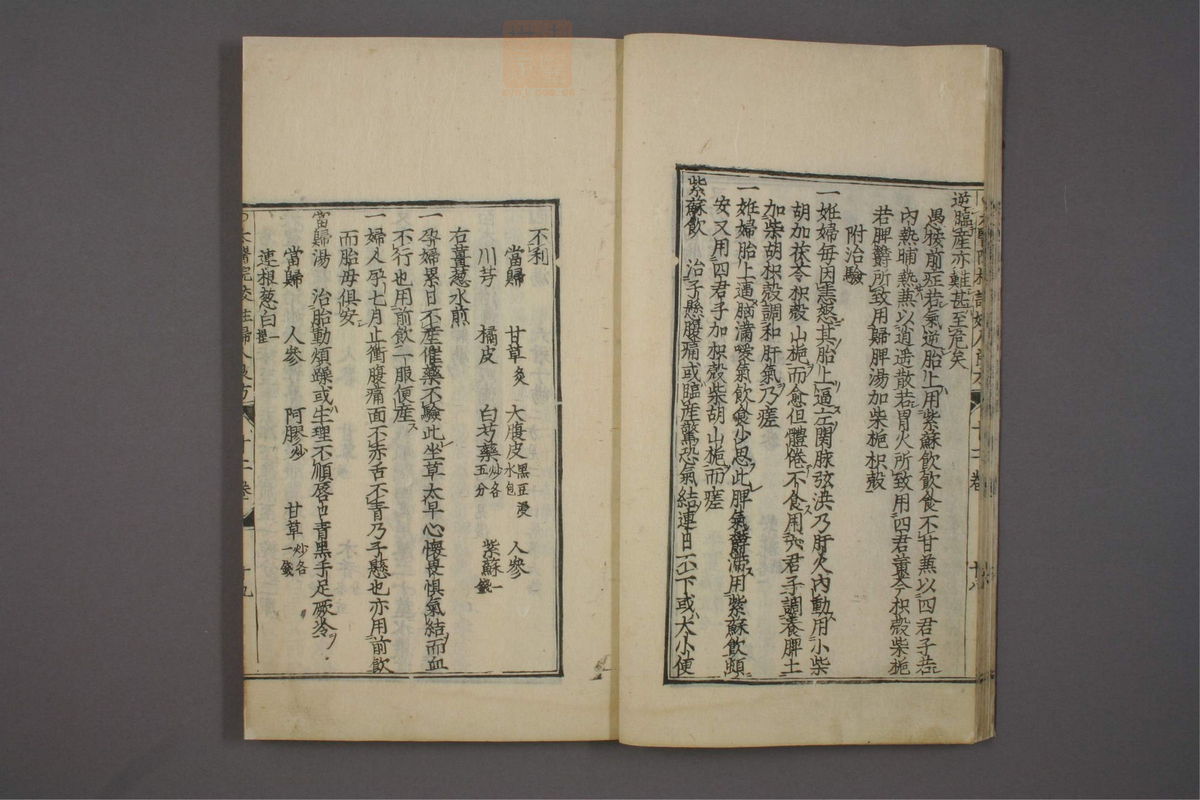 逆臨産亦難甚至危矣
愚按前症若氣逆胎上用紫蘇飲飲食不甘兼以四君子若
內熱晡熱兼以逍遥散若胃火所致用四君黃芩枳殼柴梔
若脾鬱所致用歸脾湯加柴梔枳殼
附治驗
一妊婦每因恚怒其胎上逼左關脉弦洪乃肝火內動用小柴
胡加茯苓枳殼山梔而愈但體倦不食用六君子調養脾土
加柴胡枳殼調和肝氣乃瘥
一妊婦胎上逼胸滿噯氣飲食少思此脾氣鬱滯用紫蘇飲頓
安又用四君子加枳殼柴胡山梔而瘥
紫蘇飲 治子懸腹痛或臨産驚恐氣結連日不下或大小便
不利
當歸 甘草炙 大腹皮黑豆浸水包 人參
川芎 橘皮 白芍藥炒各五分 紫蘇一錢
右薑葱水煎
一孕婦累日不産催藥不驗此坐草太早心懷畏惧氣結而血
不行也用前飲一服便産
一婦人孕七月止衝腹痛面不赤舌不青乃子懸也亦用前飲
而胎母俱安
當歸湯 治胎動煩躁或生理不順唇口青黑手足厥冷
當歸 人參 阿膠炒 甘草炒各一錢
連根葱白一握
十二卷 十九